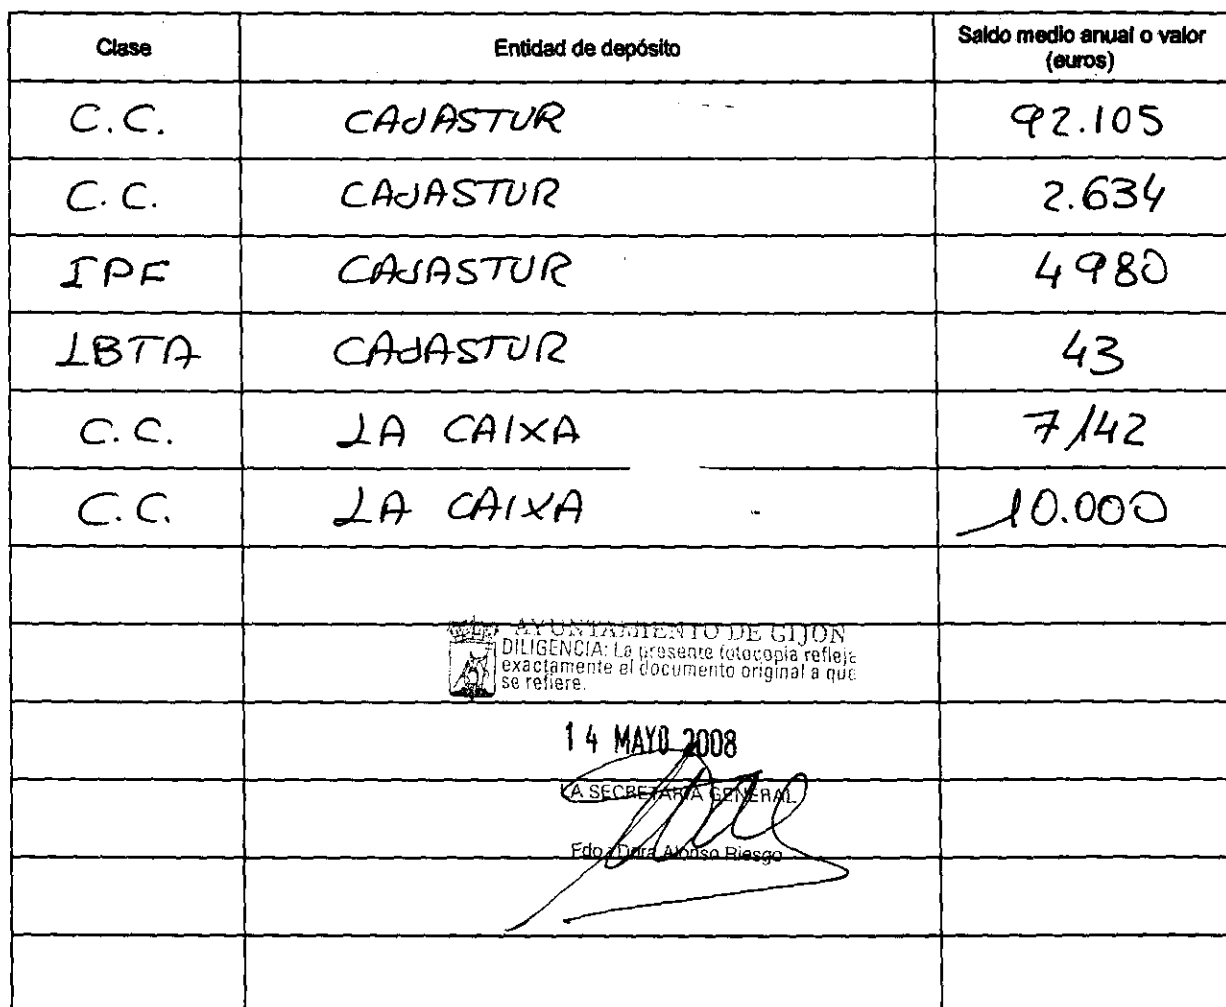 Clase Entidad de depósito Saldo medio anual o valor (euros)
C.C. CAJASTUR 92.105
C.C. CAJASTUR 2.634
IPF CAJASTUR 4980
LBTA CAJASTUR 43
C.C. LA CAIXA 7142
C.C. LA CAIXA 10.000
AYUNTAMIENTO DE GIJON
DILIGENCIA: La presente fotocopia refleja
exactamente el documento original a que
se refiere.
14 MAYO 2008
LA SECRETARIA GENERAL
Fdo.: Alonso Riesgo